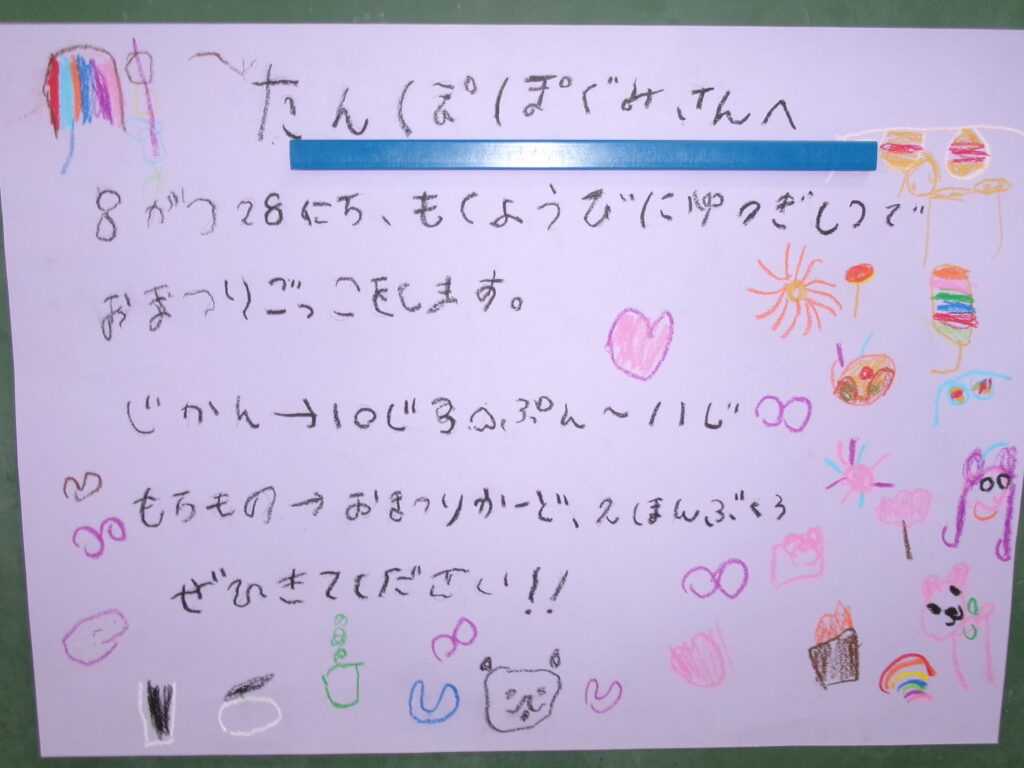 たんぽぽぐみさんへ
8がつ28にち、もくようびにゆうぎしつで
おまつりごっこをします。
じかん→10じ30ぷん〜11じ
もちもの→おまつりかーど、えほんぶくろ
ぜひきてください!!